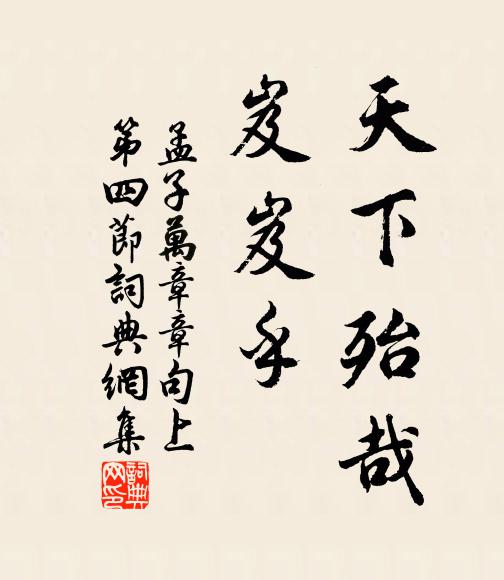 天下殆哉
岌岌乎
孟子萬章章句上
第四節詞典網集
詞典
网印